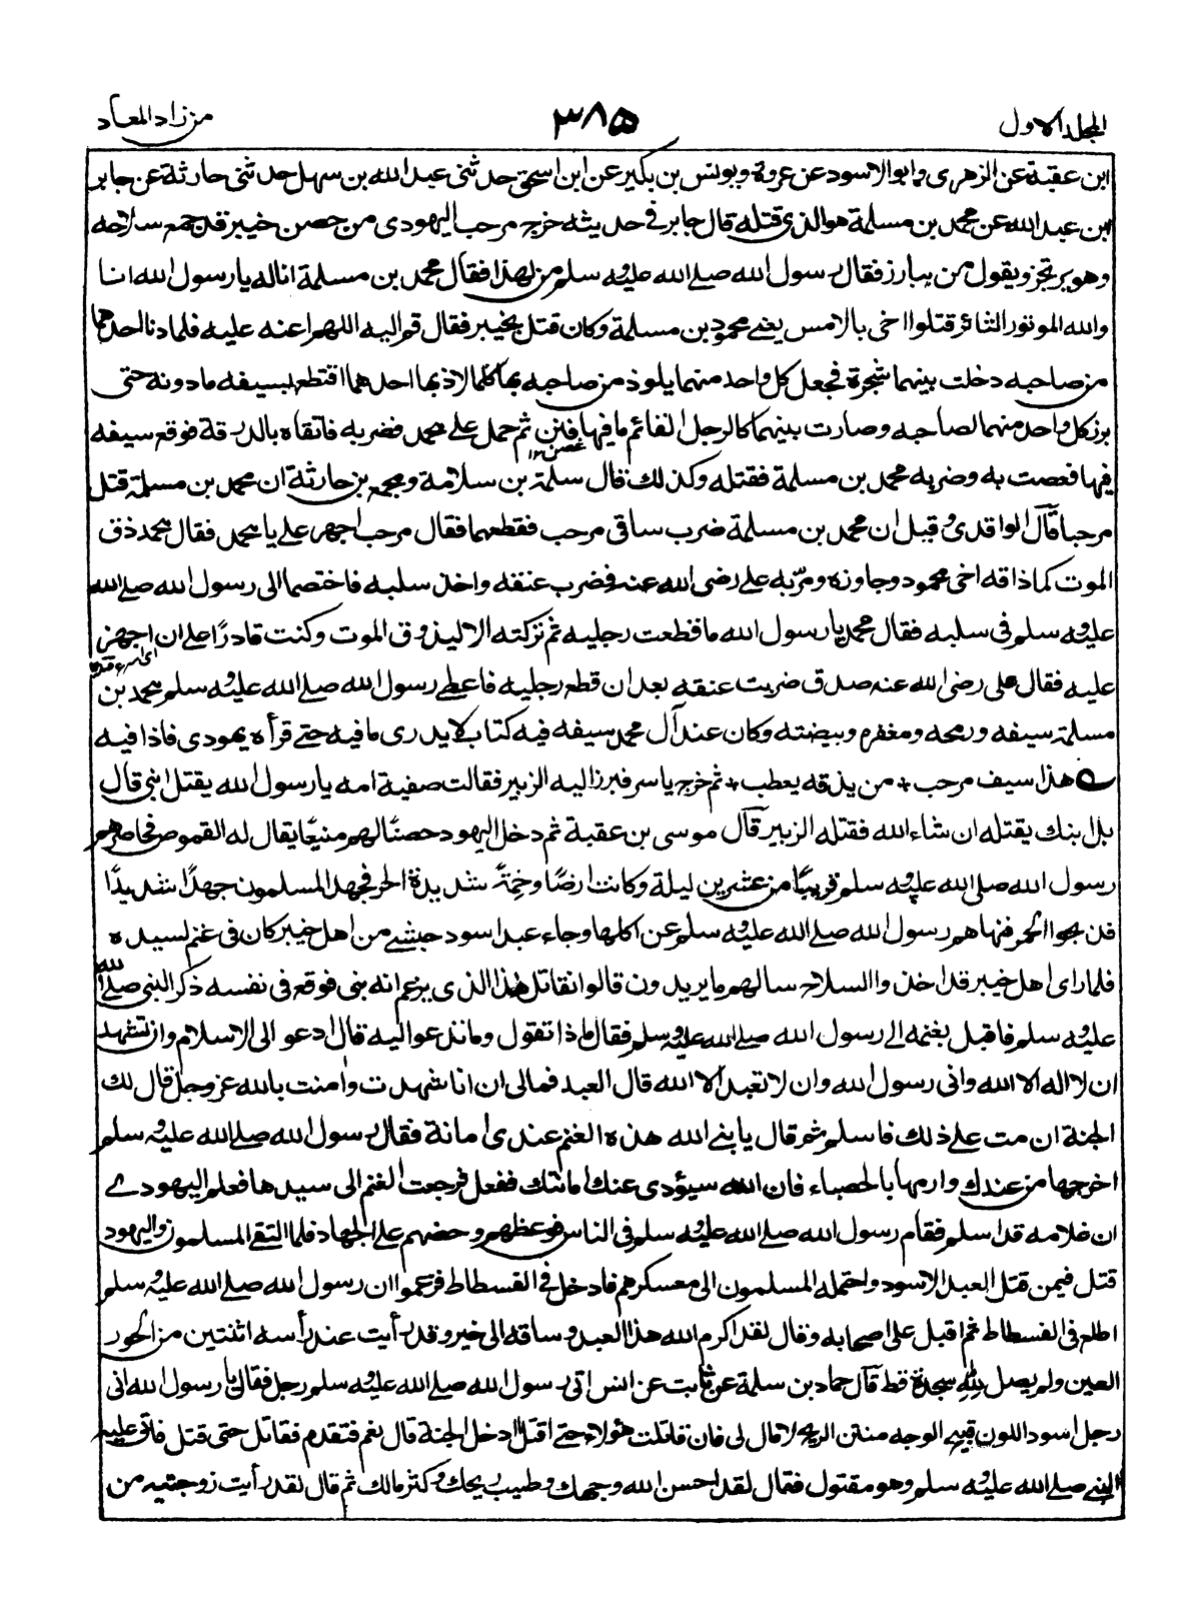 المجلد الاول
٣٨٥
من زاد المعاد
ابن عقبة عن الزهرى وابوالاسود عن عروة ويونس بن بكير عن ابن اسحق حدثنى عبد الله بن سهل حدثنى حارثة عن جابر
ابن عبد الله عن محمد بن مسلمة هوالذى قتله قال جابر فى حديثه خرج مرحب اليهودى من حصن خيبر قد جمع سلاحه
وهو يرتجز ويقول من يبارز فقال رسول الله صلے الله عليه وسلم من لهذا فقال محمد بن مسلمة اناله يارسول الله انا
والله الموتور الثائر قتلوا اخى بالامس يعنے محمود بن مسلمة وكان قتل بخيبر فقال قم اليه اللهم اعنه عليه فلما دنا احدهما
من صاحبه دخلت بينهما شجرة فجعل كل واحد منهما يلوذ من صاحبه بها كلما لاذ بها احدهما اقتطع بسيفه مادونه حتى
برز كل واحد منهما لصاحبه وصارت بينهما كالرجل القائم ما فيها فنن ثم حمل علے محمد فضربه فاتقاه بالدرقة فوقع سيفه
غصن ١٢
فيها فعضت به وضربه محمد بن مسلمة فقتله وكذلك قال سلمة بن سلامة ومجمع بن حارثة ان محمد بن مسلمة قتل
مرحبا قال الواقدى وقيل ان محمد بن مسلمة ضرب ساقى مرحب فقطعهما فقال مرحب اجهز على يا محمد فقال محمد ذق
الموت كما ذاقه اخى محمود وجاوزه ومرّ به على رضى الله عنه فضرب عنقه واخذ سلبه فاختصما الى رسول الله صلے الله
عليه وسلم فى سلبه فقال محمد يارسول الله ماقطعت رجليه ثم تركته الا ليذوق الموت وكنت قادرًا على ان اجهز
عليه فقال على رضى الله عنه صدق ضربت عنقه بعد ان قطع رجليه فاعطے رسول الله صلے الله عليه وسلم محمد بن
مسلمة سيفه ورمحه ومغفره وبيضته وكان عند آل محمد سيفه فيه كتاب لايدرى مافيه حتے قرأه يهودى فاذا فيه
هذا سيف مرحب + من يذقه يعطب + ثم خرج ياسر فبرز اليه الزبير فقالت صفية امه يارسول الله يقتل ابنى قال
بل ابنك يقتله ان شاء الله فقتله الزبير قال موسى بن عقبة ثم دخل اليهود حصنًا لهم منيعًا يقال له القموص فحاصرهم
رسول الله صلى الله عليه وسلم قريبًا من عشرين ليلة وكانت ارضًا وخمةً شديدة الحر فجهد المسلمون جهدًا شديدًا
فذبحوا الحمر فنهاهم رسول الله صلى الله عليه وسلم عن اكلها وجاء عبد اسود حبشے من اهل خيبر كان فى غنم لسيده
فلما راى اهل خيبر قد اخذوا السلاح سالهم مايريدون قالوا نقاتل هذا الذى يزعم انه نبى فوقع فى نفسه ذكر النبى صلے الله
عليه وسلم فاقبل بغنمه الے رسول الله صلے الله عليه وسلم فقال ماذا تقول وماتدعو اليه قال ادعو الى الاسلام وان تشهد
ان لا اله الا الله وانى رسول الله وان لا تعبد الا الله قال العبد فمالى ان انا شهدت وامنت بالله عز وجل قال لك
الجنة ان مت على ذلك فاسلم ثم قال يا نبے الله هذه الغنم عندى امانة فقال رسول الله صلے الله عليه وسلم
اخرجها من عندك وارمها بالحصباء فان الله سيؤدى عنك امانتك ففعل فرجعت الغنم الى سيدها فعلم اليهودے
ان غلامه قد اسلم فقام رسول الله صلے الله عليه وسلم فى الناس فوعظهم وحضهم على الجهاد فلما التقے المسلمون واليهود
قتل فيمن قتل العبد الاسود واحتمله المسلمون الى معسكرهم فادخل فى الفسطاط فزعموا ان رسول الله صلے الله عليه وسلم
اطلع فى الفسطاط ثم اقبل على اصحابه وقال لقد اكرم الله هذا العبد وساقه الى خير وقد رأيت عند رأسه اثنتين من الحور
العين ولم يصل لله سجدة قط قال حماد بن سلمة عن ثابت عن انس اتى رسول الله صلے الله عليه وسلم رجل فقال يارسول الله انى
رجل اسود اللون قبيح الوجه منتن الريح لا مال لى فان قاتلت هؤلاء حتے اقتل ادخل الجنة قال نعم فتقدم فقاتل حتى قتل فاتى عليه
النبے صلے الله عليه وسلم وهو مقتول فقال لقد احسن الله وجهك وطيب ريحك وكثر مالك ثم قال لقد رأيت زوجتيه من